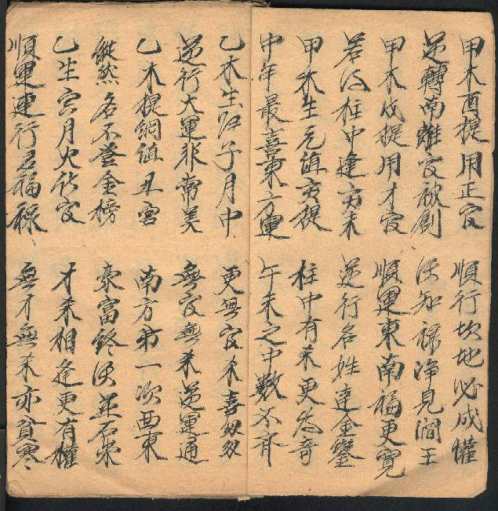 甲木酉提用正官 順行坎地必成權
逆轉南離官被剋 須知禄净見閻王
甲木戌提用才官 順運東南福更寬
若得柱中逢亥未 逆行名姓達金鑾
甲木生元值亥提 柱中有未更為奇
中年最喜東方運 午未之中數不齊
乙木生 子月中 更無官未喜匆匆
逆行大運非常美 無官無未逆運通
乙木提綱值丑宮 南方第一次西東
縱然名不登金榜 豪富終須並石崇
乙生寅月火 官 才未相逢更有權
順運運行名福祿 無才無未亦貧寒